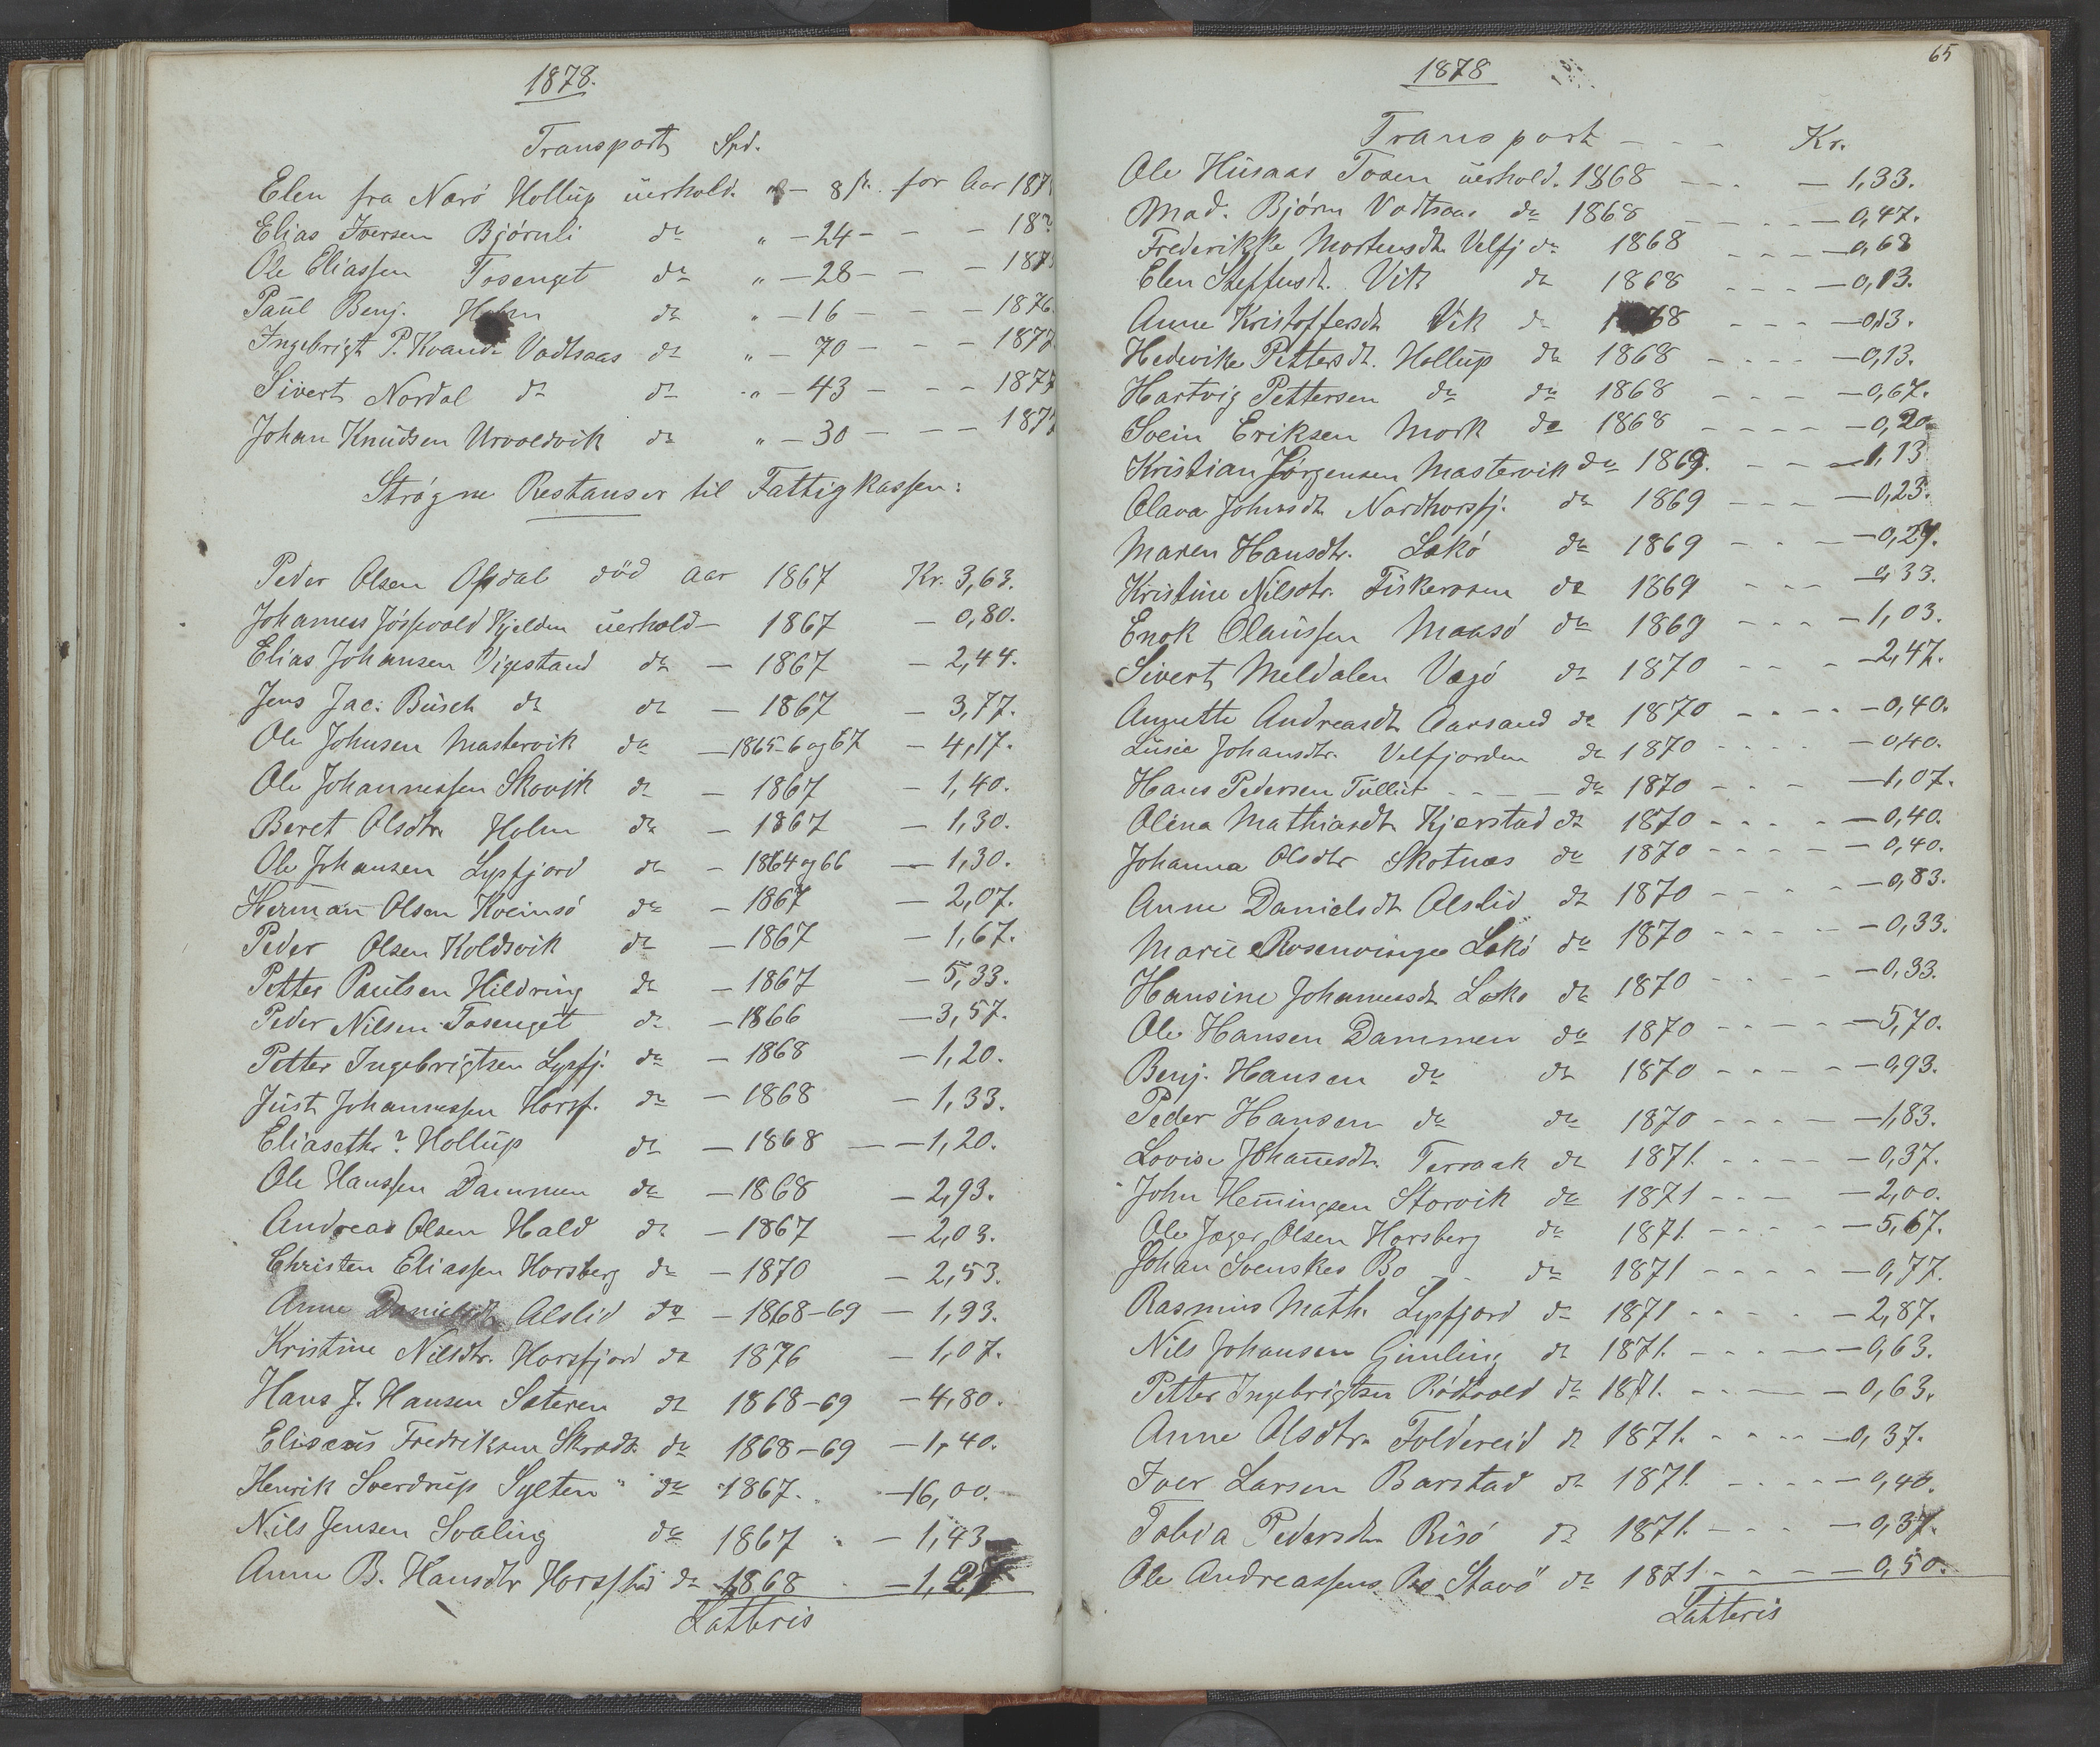 1878.
Transport Spd.
Elen fra Narö Hollup uerhold. " - 8 sk. for Aar 187
Elias Iversen Björnli do " - 24 - - - 18
Ole Eliassen Tosenget do " - 28 - - - 187
Paul Benj. Holm do " - 16 - - - 1876.
Ingebrigt P. Kvande Vadtsaas do " - 70 - - - 1877
Sivert Nordal do do " - 43 - - - 1877
Johan Knudsen Urvoldvik do " - 30 - - - 187
Strögne Restanser til Fattigkassen:
Peder Olsen Opdal död Aar 1867 Kr. 3,63.
Johannes Jössevold Kjelden uerhold - 1867 - 0,80.
Elias Johansen Vigestand do - 1867 - 2,44.
Jens Jac: Busch do do - 1867 - 3,77.
Ole Johnsen Mastervik do - 1865-6 og 67 - 4,17.
Ole Johannessen Skovik do - 1867 - 1,40.
Beret Olsdtr Holm do - 1867 - 1,30.
Ole Johansen Lysfjord do - 1864 og 66 - 1,30.
Herman Olsen Kveinsö do - 1867 - 2,07.
Peder Olsen Koldsvik do - 1867 - 1,67.
Petter Paulsen Hildring do - 1867 - 5,33.
Peder Nilsen Tosenget do - 1866 - 3,57.
Petter Ingebrigtsen Lysfj. do - 1868 - 1,20.
Just Johannessen Horsf. do - 1868 - 1,33.
Eliaseth? Hollup do - 1868 - 1,20.
Ole Hanssen Dammen do - 1868 - 2,93.
Andreas Olsen Hald do - 1867 - 2,03.
Christen Eliassen Horsberg do - 1870 - 2,53.
Anne Danielsdt. Alslid do - 1868-69 - 1,93.
Kristine Nilsdtr. Horsfjord do 1876 - 1,07.
Hans J. Hansen Sæteren do 1868-69 - 4,80.
Elisæus Fredriksen do 1868-69 - 1,40.
Henrik Sverdrup Sylten do 1867. - 16,00.
Nils Jensen Svaling do 1867 - 1,43
Anne B. Hansdtr do 1868 - 1,27
Latteris
65
1878
Transport - - - Kr.
Ole Husaas Tosen uerhold. 1868 - - - 1,33.
Mad. Björn Vadtsaas do 1868 - - - 0,47.
Frederikke Mortensdt. Velfj do 1868 - - - 0,68
Elen Steffensdt. Vik do 1868 - - - 0,13.
Anne Kristoffersdt Vik do 1868 - - - 0,13.
Hedevike Pettersdt. Hollup do 1868 - - - 0,13.
Hartvig Pettersen do do 1868 - - - 0,67.
Svein Eriksen Mork do 1868 - - - 0,20.
Kristian Jörgensen Mastervik do 1869. - - - 1,13
Olava Johnsdt. Nordhorsfj. do 1869 - - - 0,23.
Maren Hansdtr. Lekö do 1869 - - - 0,27.
Kristine Nilsdtr. Fiskerosen do 1869 - - - 0,33.
Enok Olaussen Maasö do 1869 - - - 1,03.
Sivert Meldalen Vegö do 1870 - - - 2,47.
Annette Andreasdt Aarsand do 1870 - - - 0,40.
Lusie Johansdtr. Velfjorden do 1870 - - - 0,40.
Hans Pedersen Tullut - - - do 1870 - - - 1,07.
Olina Mathiasdt. Kjerstad do 1870 - - - 0,40.
Johanna Olsdtr Skotnes do 1870 - - - 0,40.
Anne Danielsdt Alslid do 1870 - - - 0,83.
Marie Rosenvinge Lekö do 1870 - - - 0,33.
Hansine Johannesdt. Lekö do 1870 - - - 0,33.
Ole Hansen Dammen do 1870 - - - 5,70.
Benj. Hansen do do 1870 - - - 0,93.
Peder Hansen do do 1870 - - - 1,83.
Lovise Johannesdt. Terraak do 1871. - - - 0,37.
John Hemingsen Storvik do 1871 - - - 2,00.
Ole Jæger Olsen Horsberg do 1871. - - - 5,67.
Johan Svenskes Bo - - do 1871 - - - 0,77.
Rasmus Math. Lysfjord do 1871 - - - 2,87.
Nils Johansen Gimling do 1871. - - - 0,63.
Petter Ingebrigtsen Rödvold do 1871. - - - 0,63.
Anne Olsdtr. Foldereid do 1871. - - - 0,37.
Iver Larsen Barstad do 1871. - - - 0,40.
Tobia Pedersdtr Risö do 1871. - - - 0,37.
Ole Andreassens Bo Stavö do 1871 - - - 0,50.
Latteris